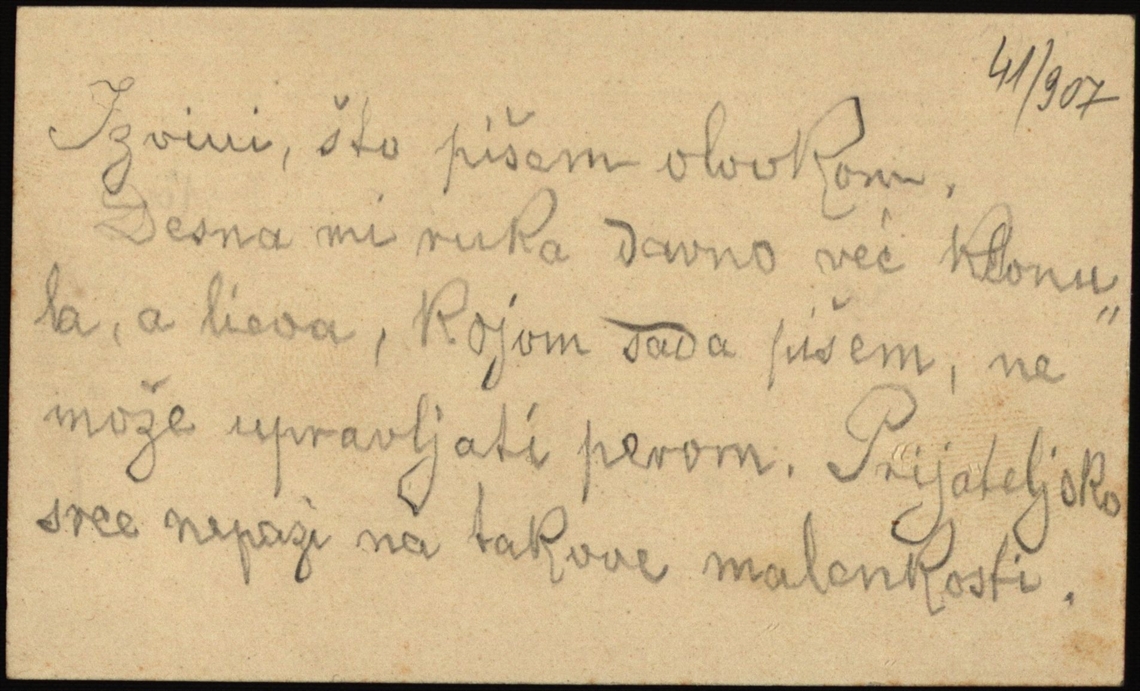 41/907
Izvini, što pišem olovkom.
Desna mi ruka davno već klonu„
la, a lieva, kojom sada pišem, ne
može upravljati perom. Prijateljsko
srce nepazi na takove malenkosti.